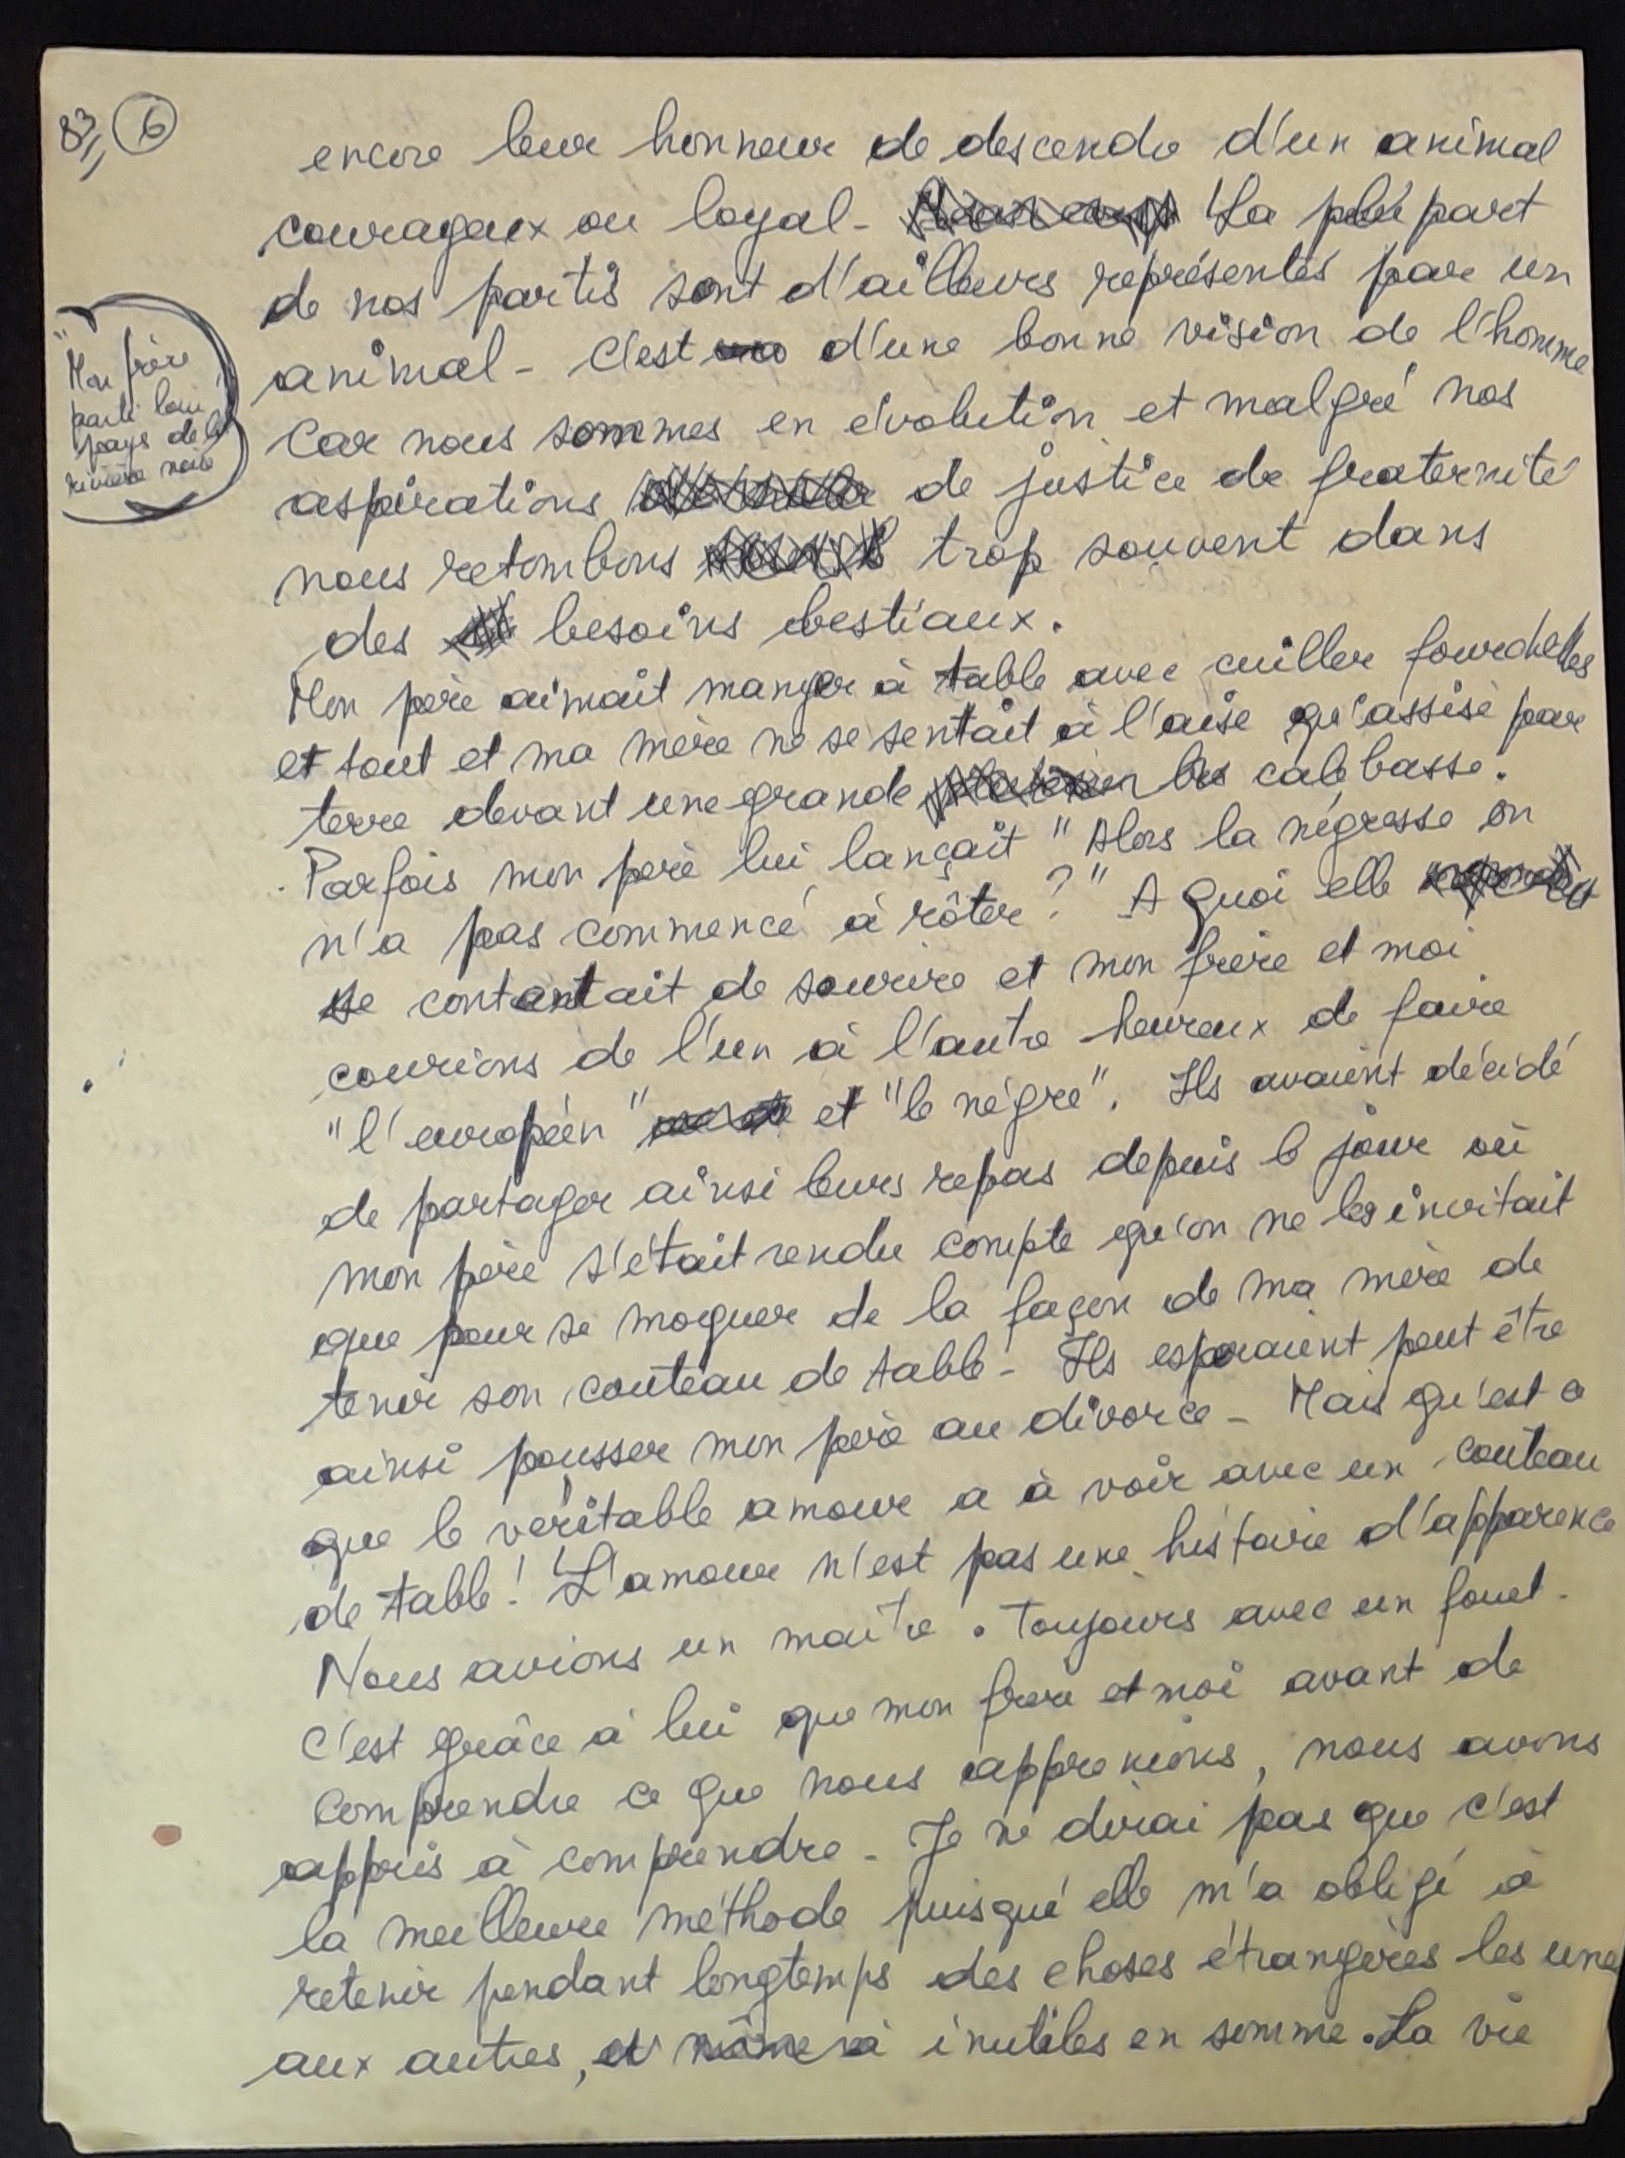 83 6
encore leur honneur de descendre d'un animal
courageux ou loyal - La plupart
de nos partis sont d'ailleurs représentés par un
animal - C'est d'une bonne vision de l'homme
"Mon frère
parti loin
pays de la
rivière noire
Car nous sommes en évolution et malgré nos
aspirations de justice de fraternité
nous retombons trop souvent dans
des besoins bestiaux.
Mon père aimait manger à table avec cuiller fourchettes
et tout et ma mère ne se sentait à l'aise qu'assise par
terre devant une grande calebasse.
Parfois mon père lui lançait "Alors la négresse on
n'a pas commencé à rôter ?" A quoi elle
se contentait de sourire et mon frère et moi
courions de l'un à l'autre heureux de faire
"l'européen" et "le nègre". Ils avaient décidé
de partager ainsi leurs repas depuis le jour où
mon père s'était rendu compte qu'on ne les invitait
que pour se moquer de la façon de ma mère de
tenir son couteau de table - Ils espéraient peut être
ainsi pousser mon père au divorce - Mais qu'est ce
que le véritable amour a à voir avec un couteau
de table ! L'amour n'est pas une histoire d'apparence
Nous avions un maître. Toujours avec un fouet.
C'est grâce à lui que mon frère et moi avant de
comprendre ce que nous apprenions, nous avons
appris à comprendre - Je ne dirai pas que c'est
la meilleure méthode puisqué elle m'a obligé à
retenir pendant longtemps des choses étrangères les unes
aux autres, et inutiles en somme. La vie